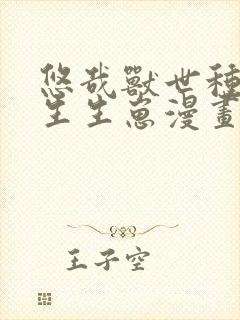 悠哉獸世種
生生崽漫畫
王子空